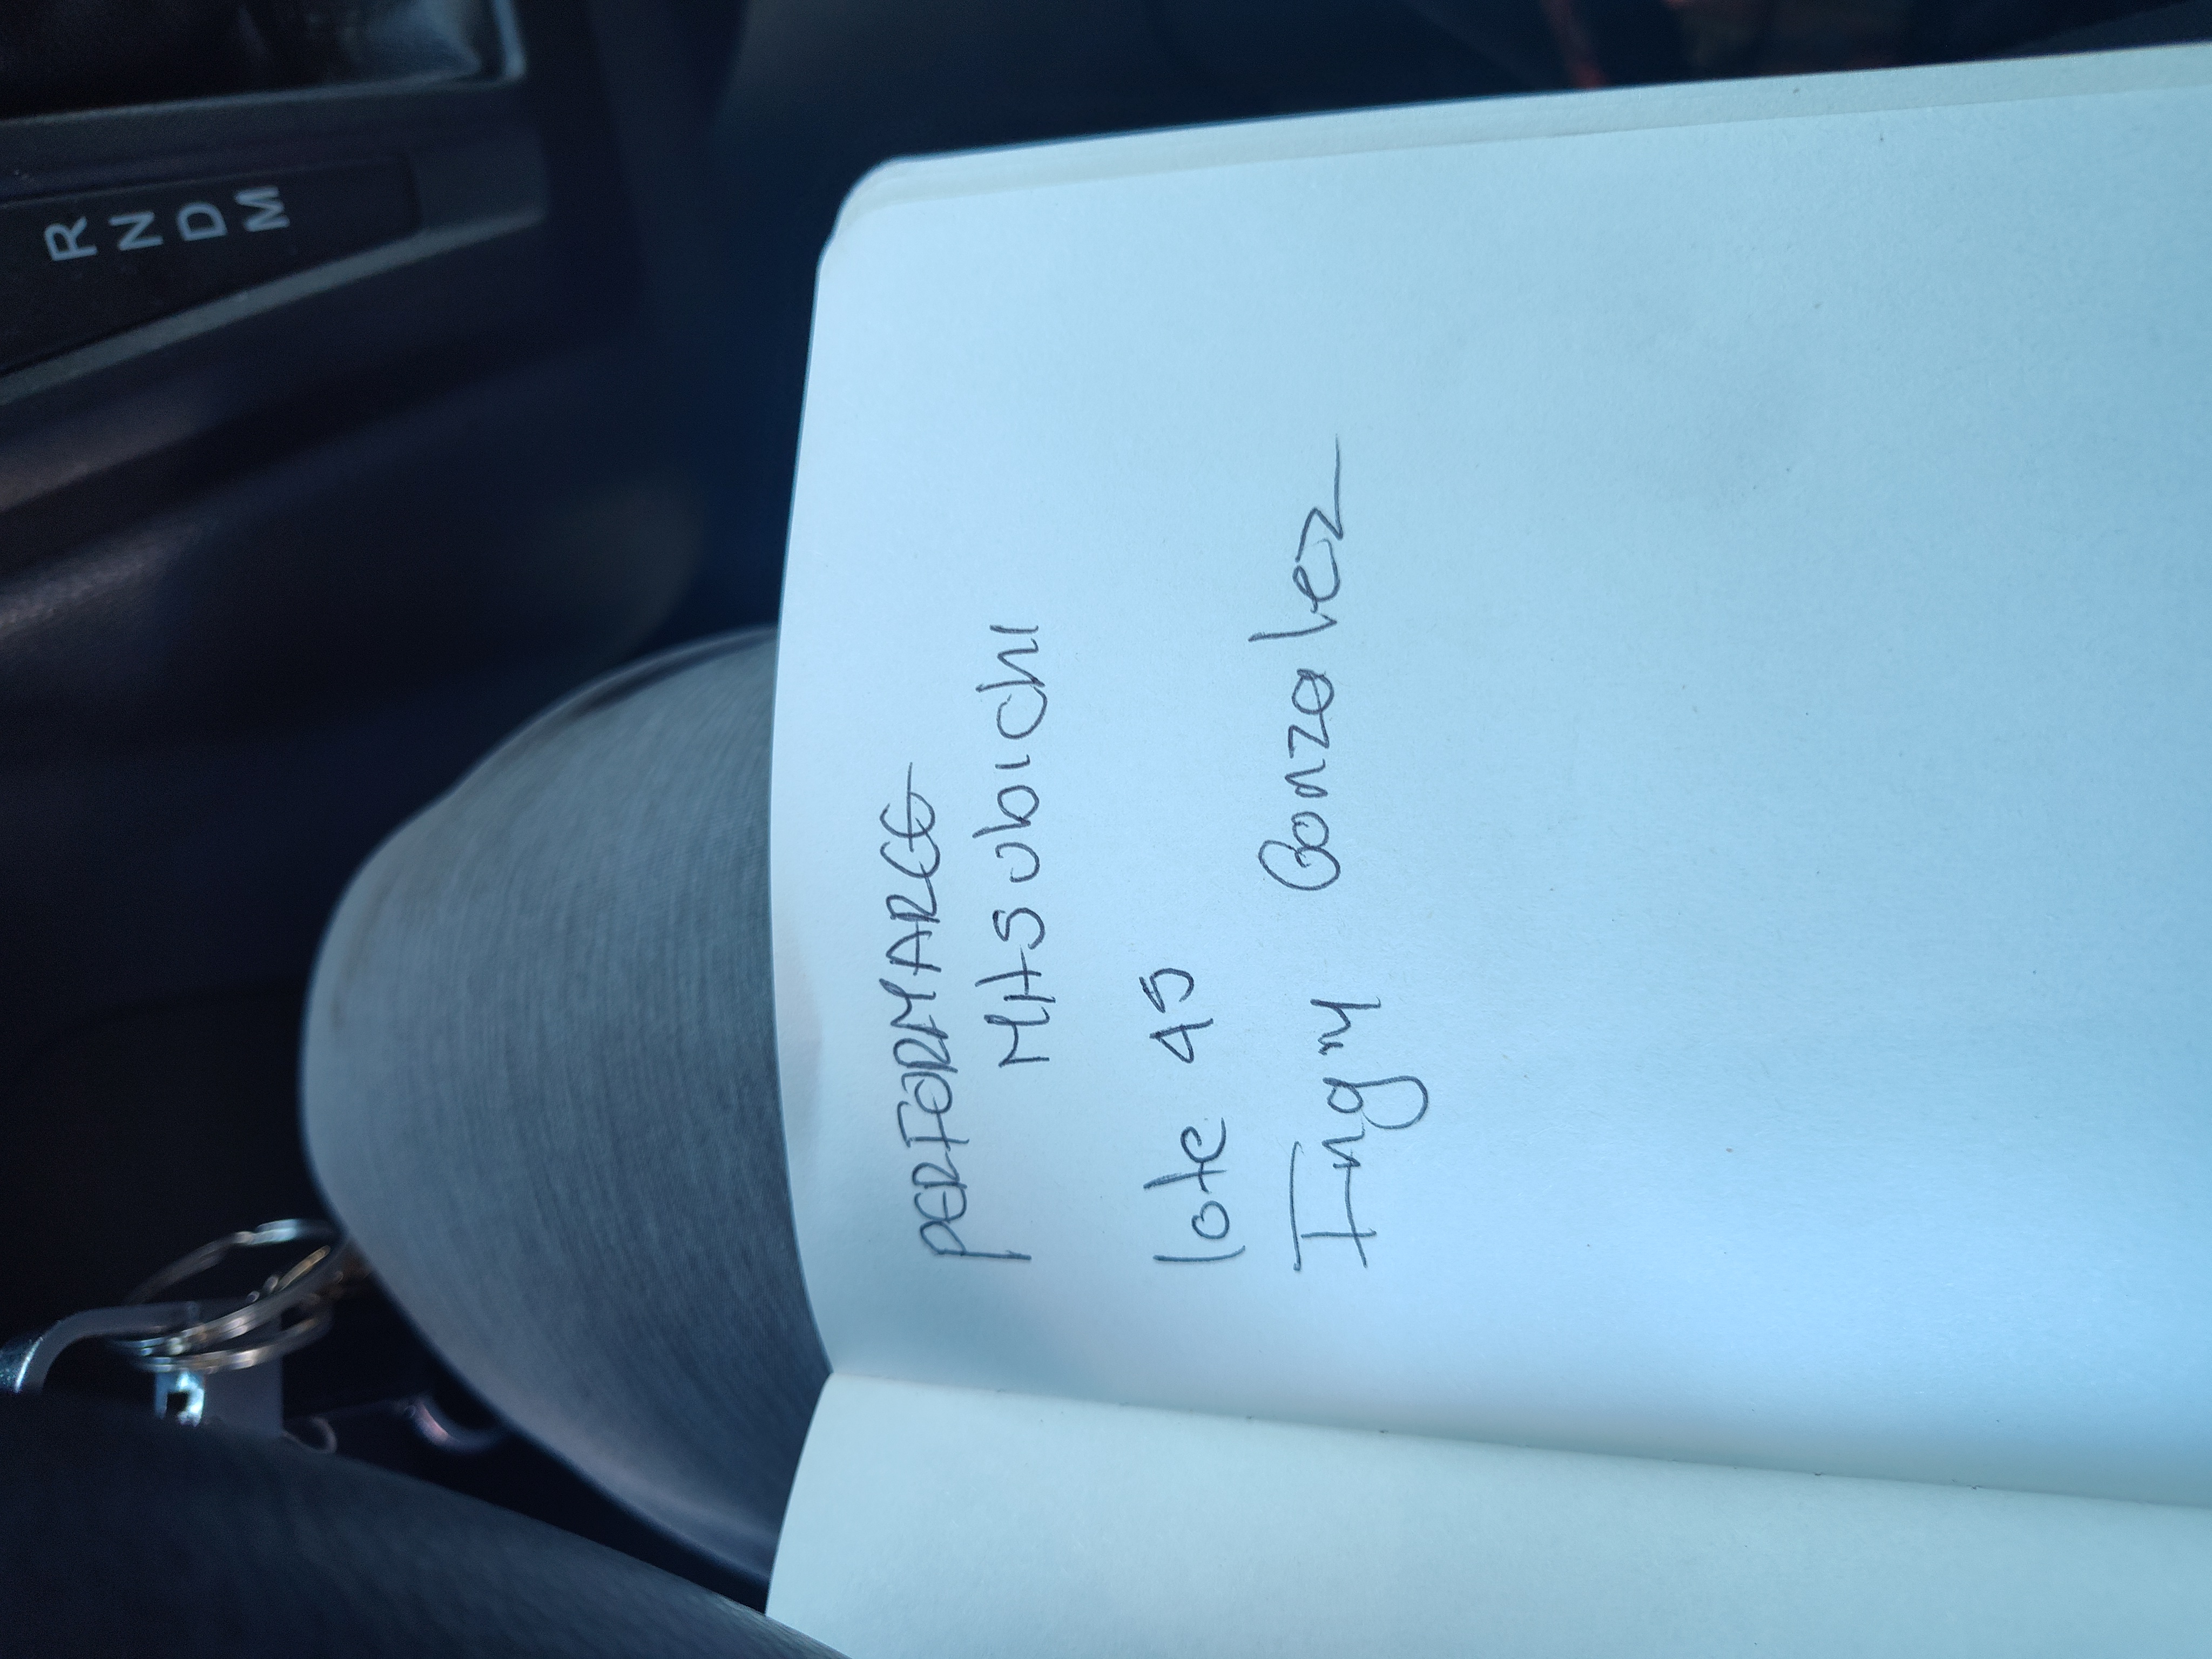 R
N
D
M
PERFORMARGG
Mitsubichi
lote 45
Gonzalez